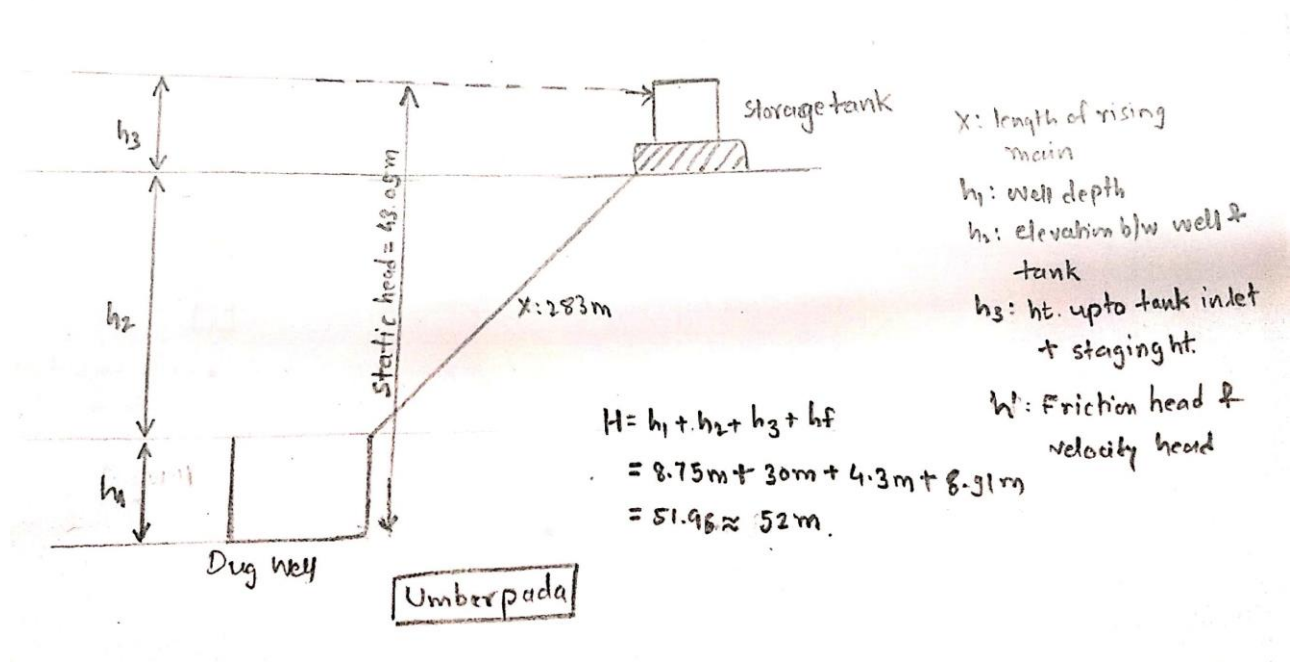 h3
Storage tank
Static head = 43.05m
h2
X:283m
h1
Dug Well
Umberpada
X: length of rising
main
h1: well depth
h2: elevation b/w well &
tank
h3: ht. upto tank inlet
+ staging ht.
h': Friction head &
velocity head
H= h1 + h2 + h3 + hf
= 8.75m + 30m + 4.3m + 8.91m
= 51.96 ≈ 52m.